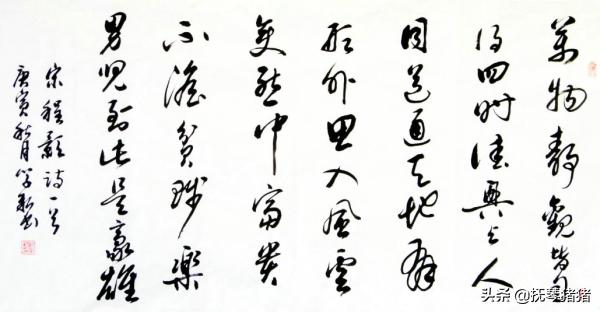 萬物靜觀皆自
得四时佳興与人
同道通天地有
形外思入風雲
變態中富貴
不淫貧賤樂
男兒到此是豪雄
宋程顥詩一首
庚寅秋月
头条 @抚琴猪猪